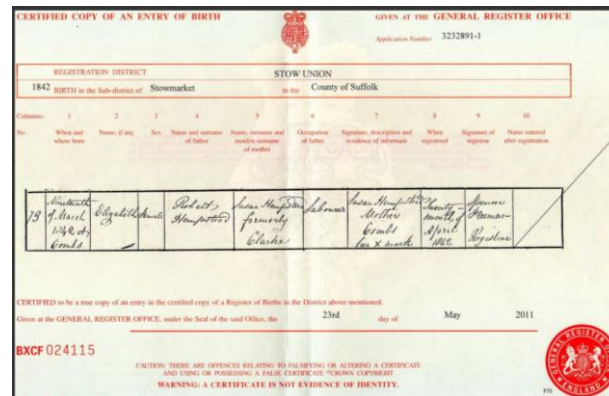 CERTIFIED COPY OF AN ENTRY OF BIRTH
GIVEN AT THE GENERAL REGISTER OFFICE
Application Number 3232891-1
REGISTRATION DISTRICT STOW UNION
1842 BIRTH in the Sub-district of Stowmarket in the County of Suffolk
Columns:- 1 2 3 4 5 6 7 8 9 10
No. When and where born Name, if any Sex Name and surname of father Name, surname and maiden surname of mother Occupation of father Signature, description and residence of informant When registered Signature of registrar Name entered after registration
Nineteenth of March 1842 at Combs
Elizabeth
Female
Robert Hempstead
Susan Hempstead formerly Clarke
Labourer
Susan Hempstead Mother Combs her X mark
April 1842
Spencer Freeman Registrar
CERTIFIED to be a true copy of an entry in the certified copy of a Register of Births in the District above mentioned.
Given at the GENERAL REGISTER OFFICE, under the Seal of the said Office, the 23rd day of May 2011
BXCF 024115
CAUTION: THERE ARE OFFENCES RELATING TO FALSIFYING OR ALTERING A CERTIFICATE
AND USING OR POSSESSING A FALSE CERTIFICATE ©CROWN COPYRIGHT
WARNING: A CERTIFICATE IS NOT EVIDENCE OF IDENTITY.